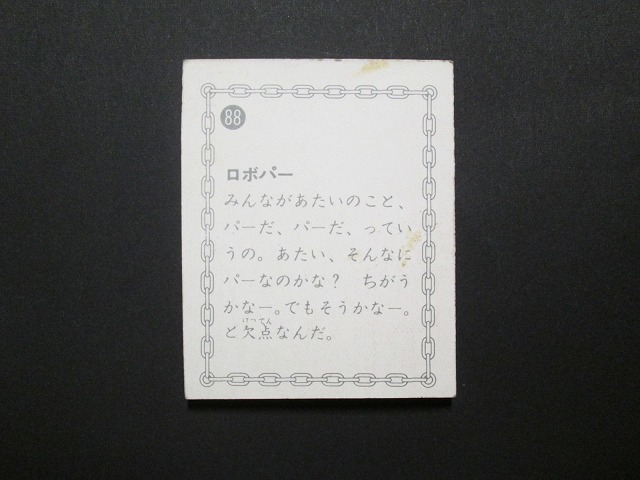 88
ロボパー
みんながあたいのこと、
パーだ、パーだ、ってい
うの。あたい、そんなに
パーなのかな？　ちがう
かなー。でもそうかなー。
けってん
と欠点なんだ。